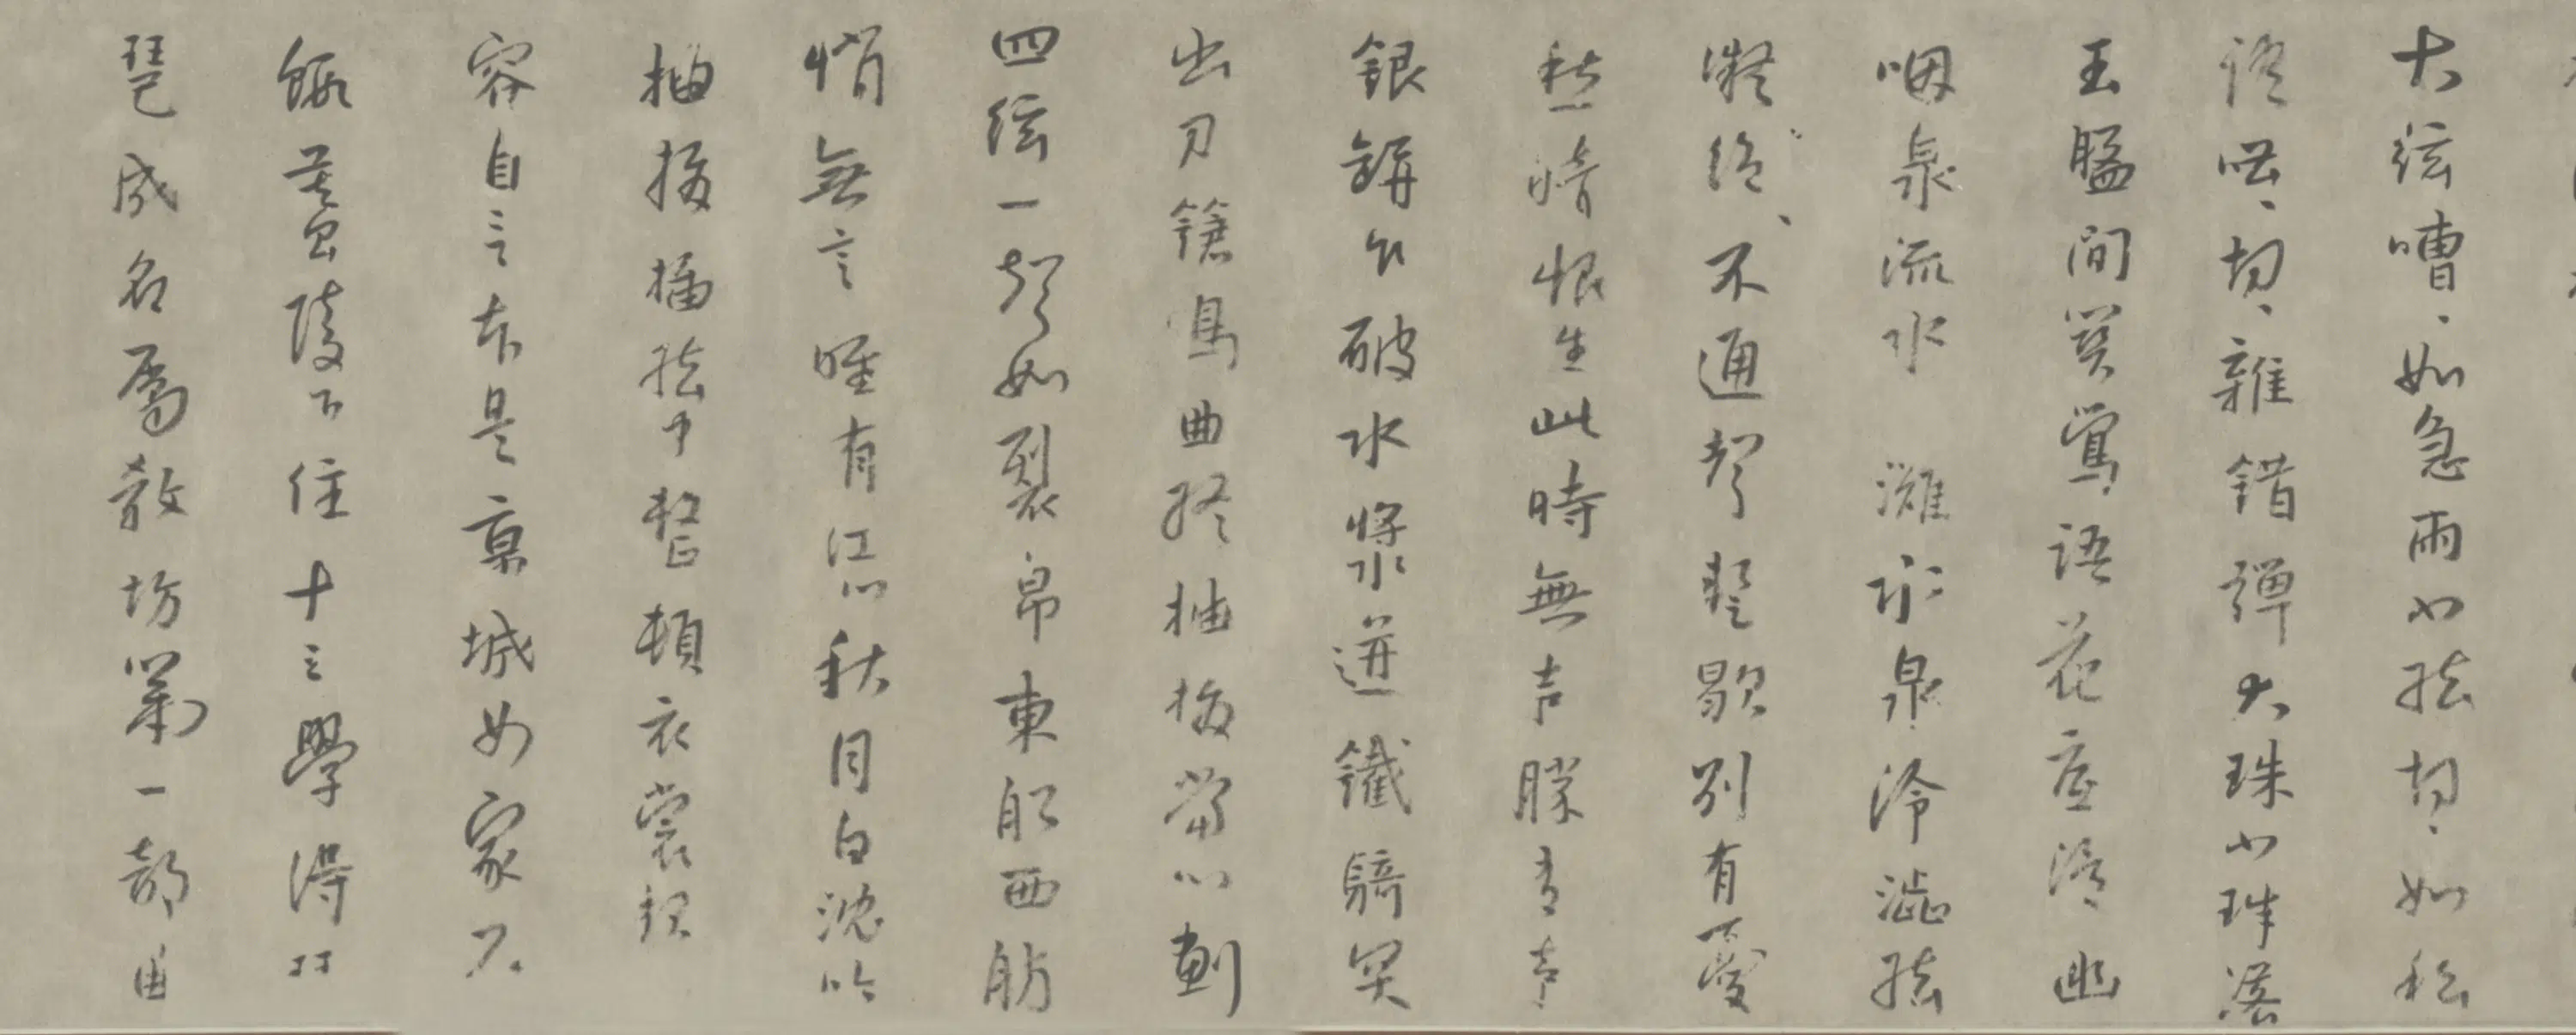 大弦嘈、如急雨小弦切、如私
語嘈、切、雜錯彈大珠小珠落
玉盤間關鶯語花底滑幽
咽泉流水灘氷泉冷澀弦
凝絕、不通聲暫歇別有憂
愁暗恨生此時無声勝有声
銀缾乍破水漿迸鐵騎突
出刀鎗鳴曲終抽撥當心劃
四弦一聲如裂帛東船西舫
悄無言唯有江心秋月白沈吟
抽撥插弦中整頓衣裳起
容自言本是京城女家在
蝦蟇陵下住十三學得
琶成名屬教坊第一部曲